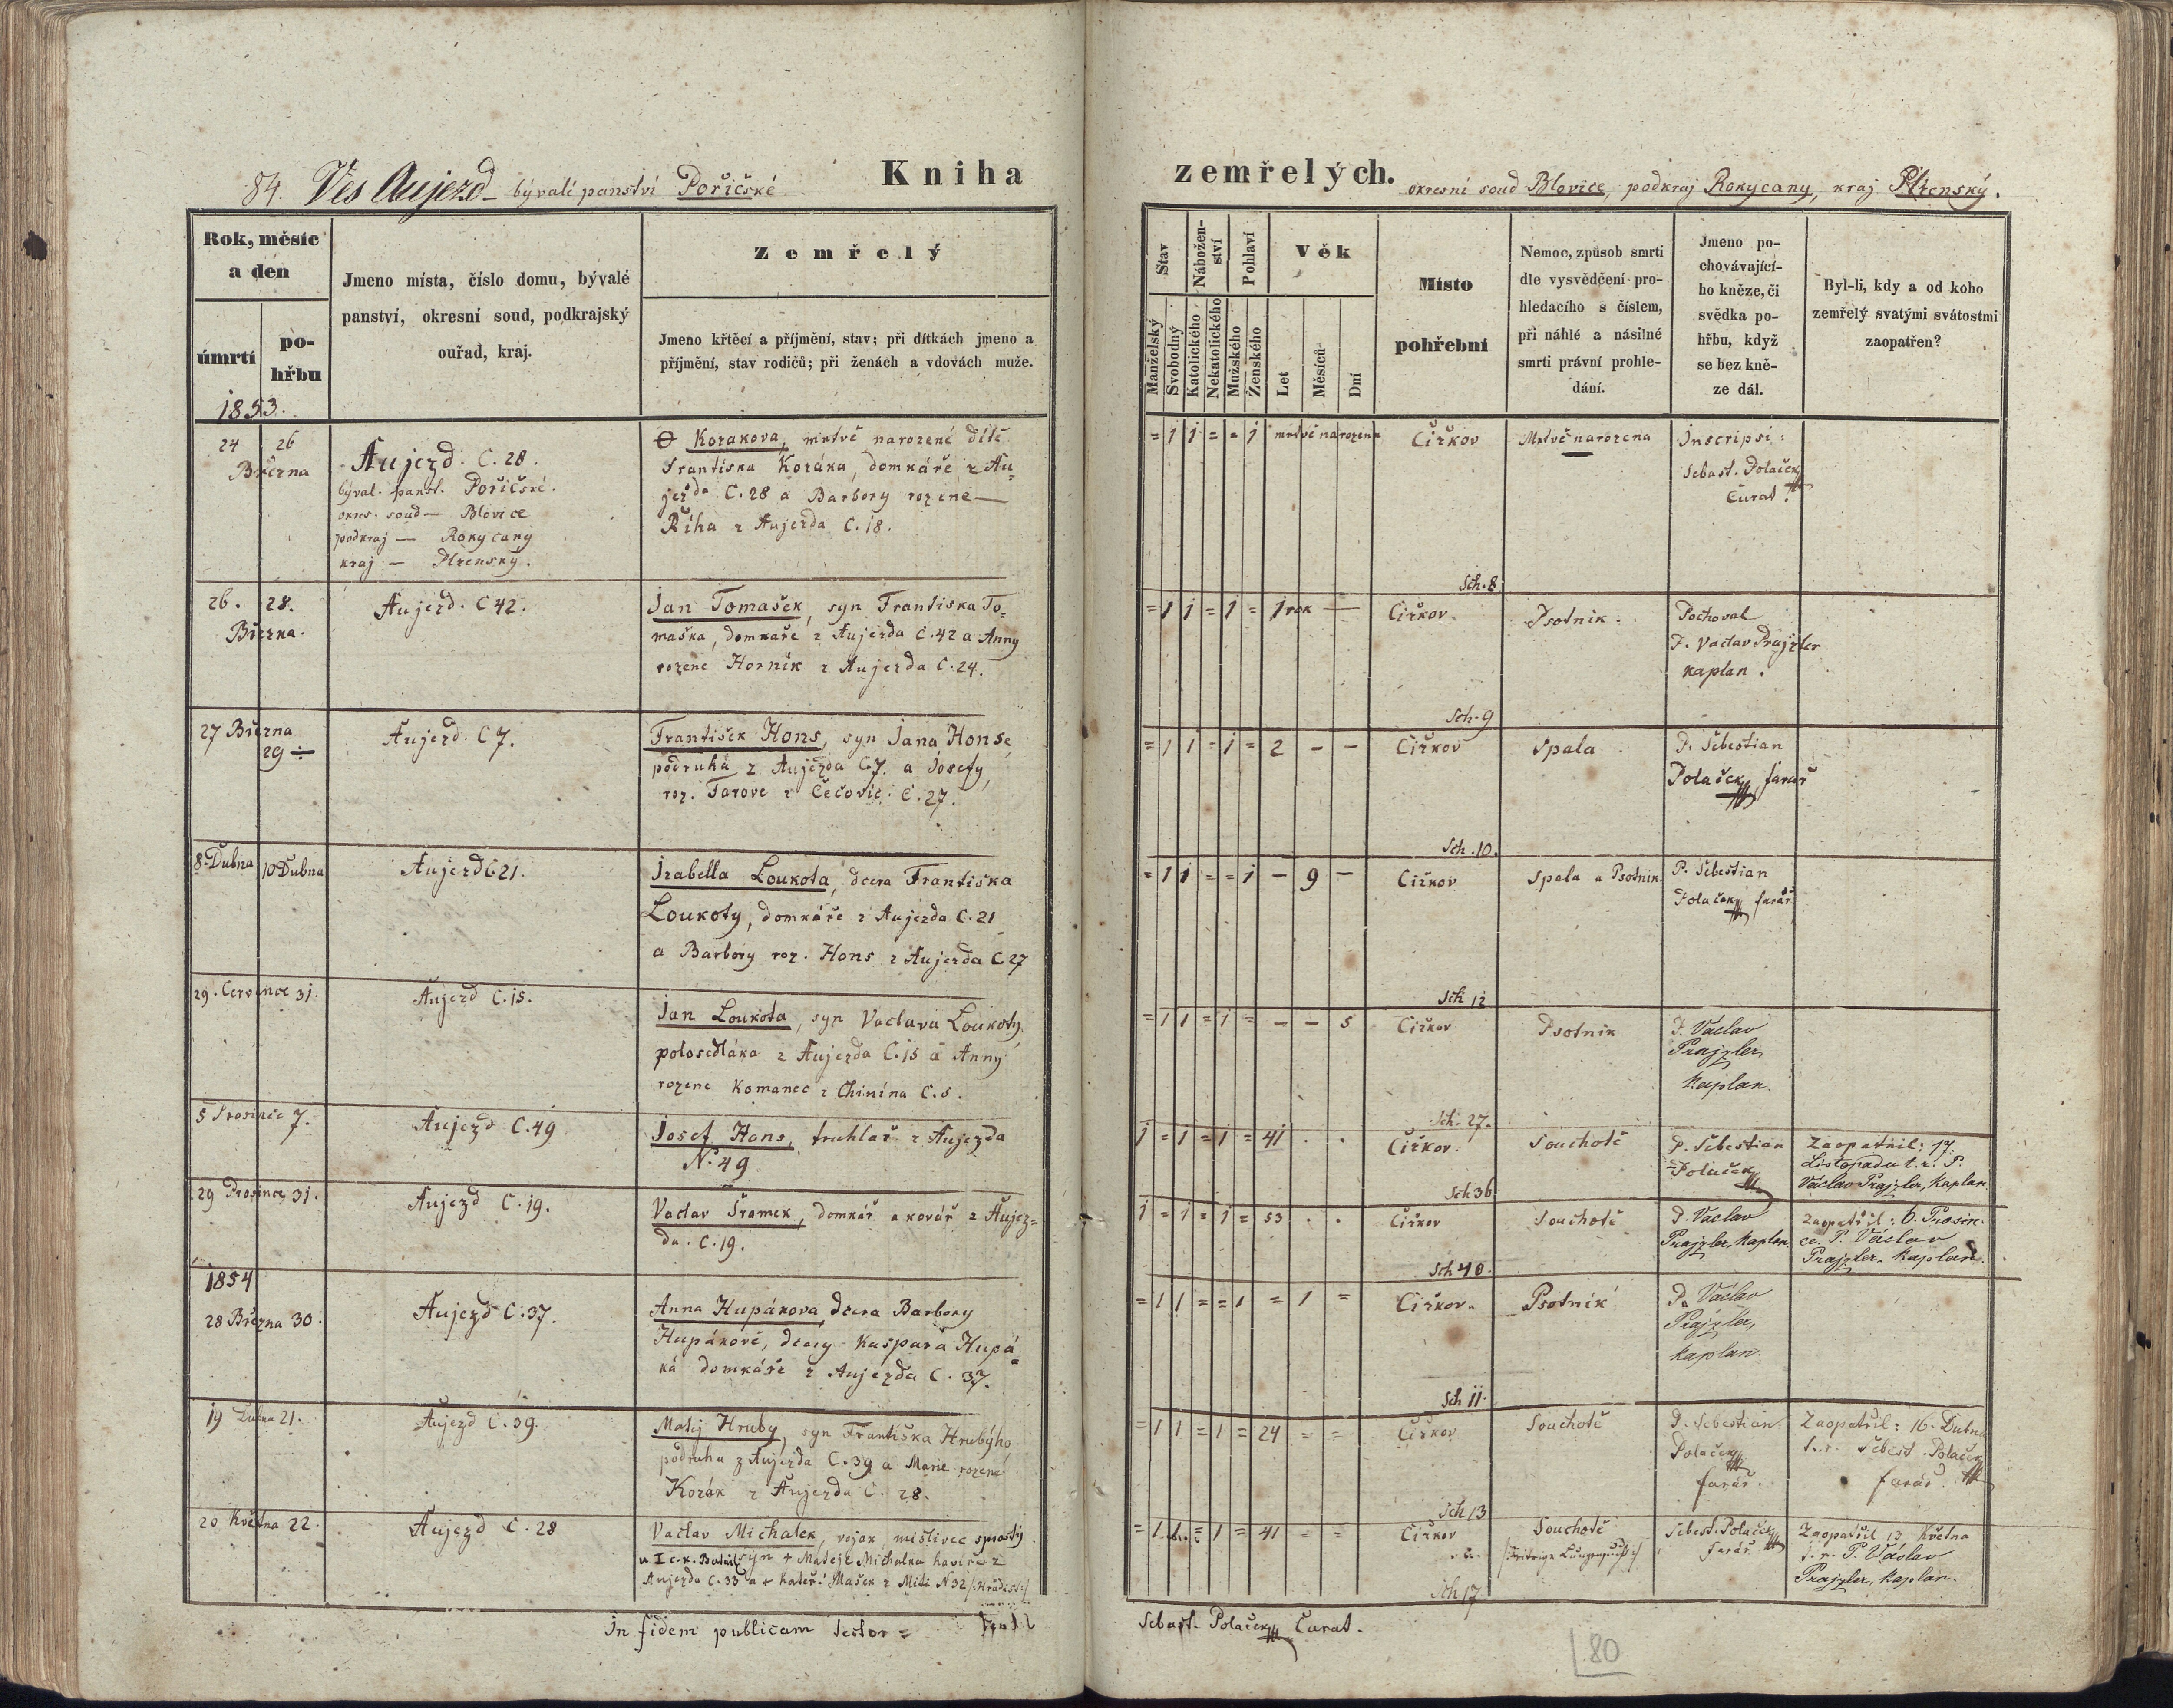 84. Ves Aujezd - bývalé panství Pořičské
Kniha
zemřelých.
okresní soud Blovice, podkraj Rokycany, kraj Plzenský.
Rok, měsíc
a den
úmrtí
po-
hřbu
Jmeno místa, číslo domu, bývalé
panství, okresní soud, podkrajský
ouřad, kraj.
Zemřelý
Jmeno křtěcí a příjmění, stav; při dítkách jmeno a
příjmění, stav rodičů; při ženách a vdovách muže.
Stav
Nábožen-
ství
Pohlaví
Věk
Manželský
Svobodný
Katolického
Nekatolického
Mužského
Ženského
Let
Měsíců
Dní
Místo
pohřební
Nemoc, způsob smrti
dle vysvědčení pro-
hledacího s číslem,
při náhlé a násilné
smrti právní prohle-
dání.
Jmeno po-
chovávající-
ho kněze, či
svědka po-
hřbu, když
se bez kně-
ze dál.
Byl-li, kdy a od koho
zemřelý svatými svátostmi
zaopatřen?
1853.
24 26
Března
Aujezd. C. 28.
býval. panst. Pořičské.
okres. soud — Blovice
podkraj — Rokycany
kraj — Plzenský.
Korakova, mrtvě narozené dítě
Františka Koráka, domkáře z Au-
jezda C. 28 a Barbory rozené —
Říha z Aujezda C. 18.
= 1 1 = = 1 mrtvě narozena
Čižkov
Mrtvě narozena
Inscripsi:
Sebast. Polaček
Curat.
Sch. 8
26. 28.
Března.
Aujezd. C 42.
Jan Tomašek, syn Františka To-
maška, domkaře z Aujezda C. 42 a Anny
rozene Horník z Aujezda C. 24.
= 1 1 = 1 = 1 rok —
Čižkov.
Psotník.
Pochoval
P. Vaclav Prajzler
kaplan.
Sch. 9
27 Března
29 ÷
Aujezd. C 7.
František Hons, syn Jana Honse,
podruha z Aujezda C. 7. a Josefy,
roz. Tarove z Čečovic. C. 27.
= 1 1 = 1 = 2 - -
Čižkov
Spala
P. Sebestian
Polaček, farář
Sch. 10.
8. Dubna 10 Dubna
Aujezd C 21.
Izabella Loukota, dcera Františka
Loukoty, domkáře z Aujezda C. 21
a Barbory roz. Hons z Aujezda C. 27
= 1 1 = = 1 - 9 -
Čižkov
Spala a Psotník.
P. Sebestian
Polaček farář.
Sch 12
29. Července 31.
Aujezd C. 15.
Jan Loukota, syn Vaclava Loukoty,
polosedláka z Aujezda C. 15 a Anny
rozene Komanec z Chinína C. 5.
= 1 1 = 1 = - - 5
Čižkov
Psotník
P. Václav
Prajzler,
kaplan.
Sch. 27.
5 Prosince 7.
Aujezd C. 49
Josef Hons, truhlař z Aujezda
N. 49
1 = 1 = 1 = 41 . .
Čižkov.
Souchotě
P. Sebestian
Polaček
Zaopatřil: 17.
Listopadu t. r. P.
Václav Prajzler, kaplan.
Sch 36
29 Prosince 31.
Aujezd C. 19.
Vaclav Šramek, domkář a kovář z Aujez-
da. C. 19.
1 = 1 = 1 = 53 . .
Čižkov
Souchotě
P. Vaclav
Prajzler, kaplan.
Zaopatřil: 6. Prosin-
ce. P. Václav
Prajzler. kaplan.
Sch 40.
1854
28 Března 30.
Aujezd C. 37.
Anna Hupákova, dcera Barbory
Hupákové, dcery Kašpara Hupá-
ka domkáře z Aujezda C. 37.
= 1 1 = = 1 = 1 =
Čižkov.
Psotník
P. Václav
Prajzler,
kaplan.
Sch 11.
19 Dubna 21.
Aujezd C. 39.
Matěj Hruby, syn Františka Hrubýho,
podruha z Aujezda C. 39 a Marie rozené
Korák z Aujezda C. 28.
= 1 1 = 1 = 24 = =
Čižkov
Souchotě
P. Sebestian
Polaček
farář.
Zaopatřil: 16. Dubna
t. r. Sebest. Polaček
farář.
Sch 13
20 Května 22.
Aujezd C. 28
Vaclav Michalek, vojak, mislivec sprostý
u I c. k. Batail. syn + Matěje Michalka kováře z
Aujezda C. 33 a + Kateř. Mašek z Miti N 32
= 1 1 = 1 = 41 = =
Čižkov
Souchotě
Sebest. Polaček
farář
Zaopatřil 13 Května
t. r. P. Václav
Prajzler, kaplan.
Sch 17
In fidem publicam testor =
Sebast. Polaček Curat.
80